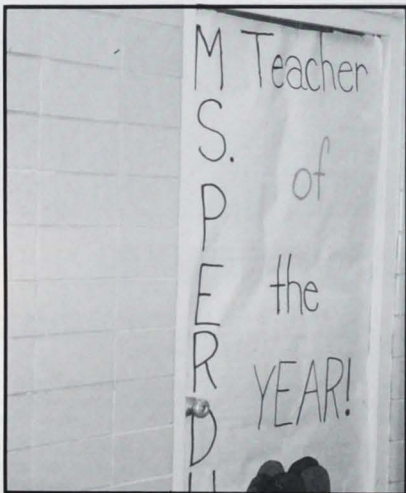 MS. PERDU
Teacher
of
the
YEAR!